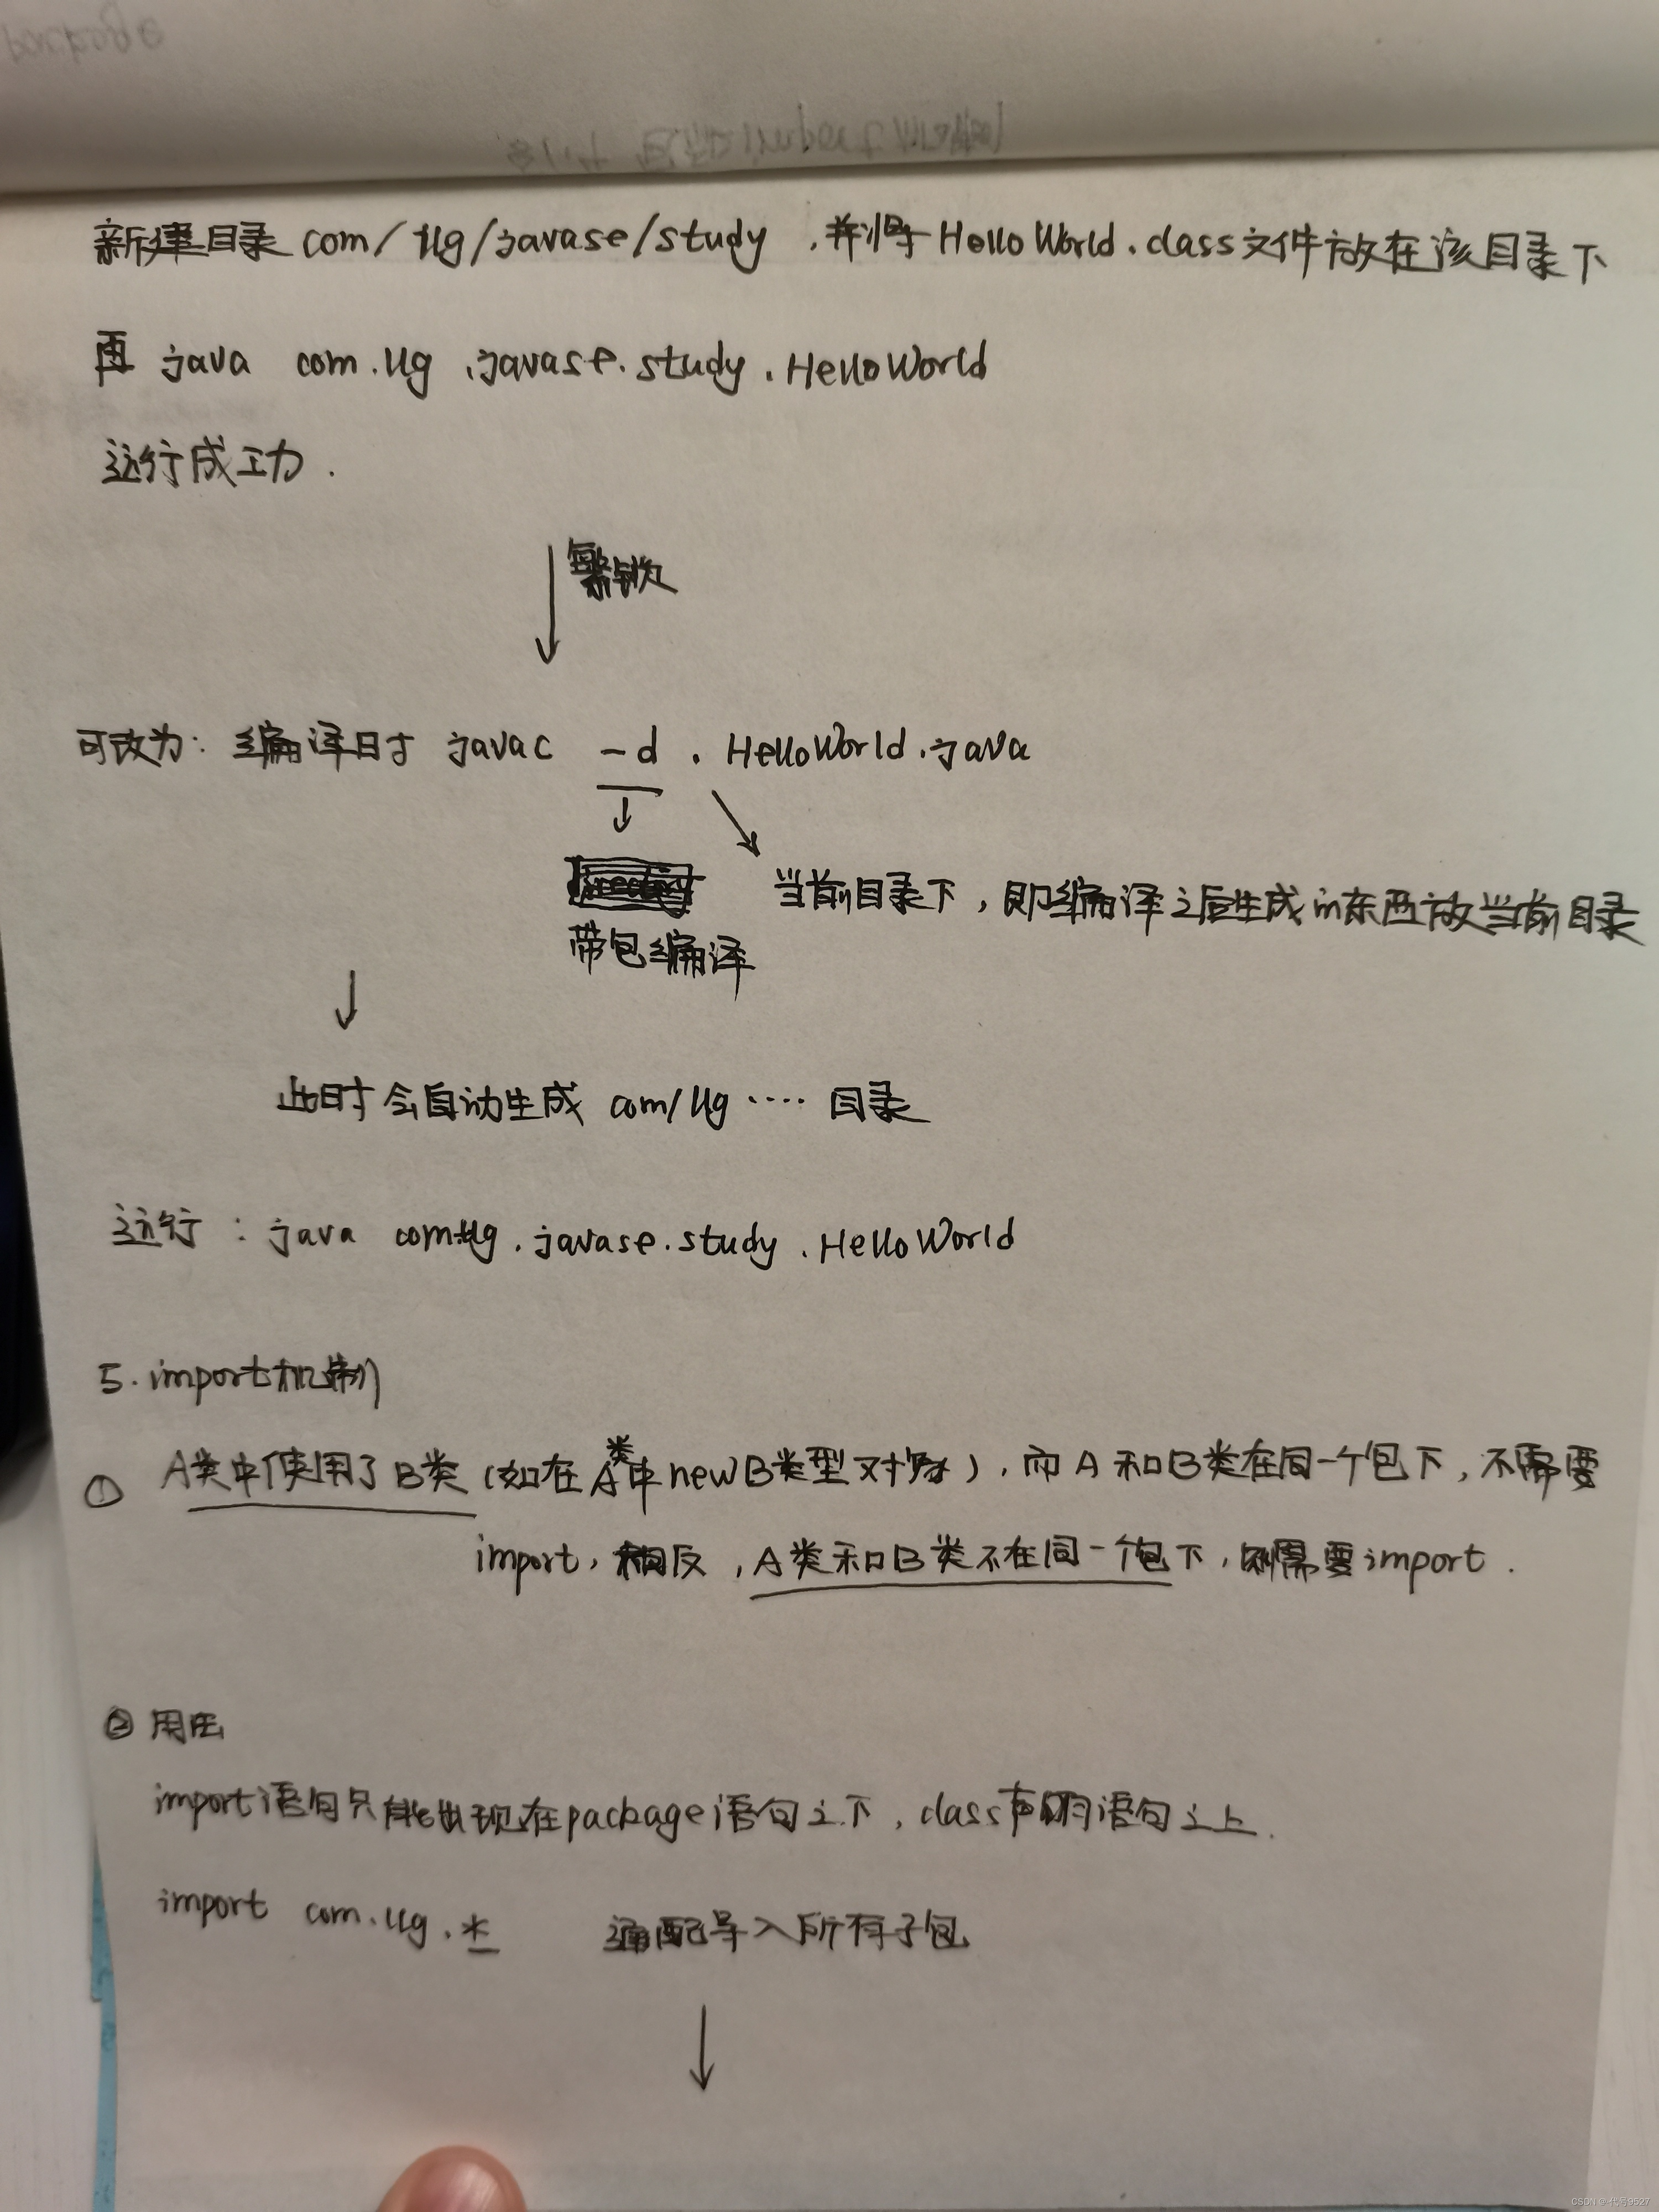 新建目录 com/llg/javase/study ,并将 HelloWorld.class文件放在该目录下
再 java com.llg.javase.study.HelloWorld
运行成功.
繁锁
可改为: 编译时 javac -d . HelloWorld.java
当前目录下,即编译之后生成的东西放当前目录
带包编译
此时会自动生成 com/llg ···· 目录
运行 : java com.llg.javase.study.HelloWorld
5.import机制
① A类中使用了B类(如在A类中newB类型对象),而A和B类在同一个包下,不需要
import,相反,A类和B类不在同一个包下,则需要import.
② 用法
import语句只能出现在package语句之下,class声明语句之上.
import com.llg.* 通配导入所有子包
CSDN @代号9527